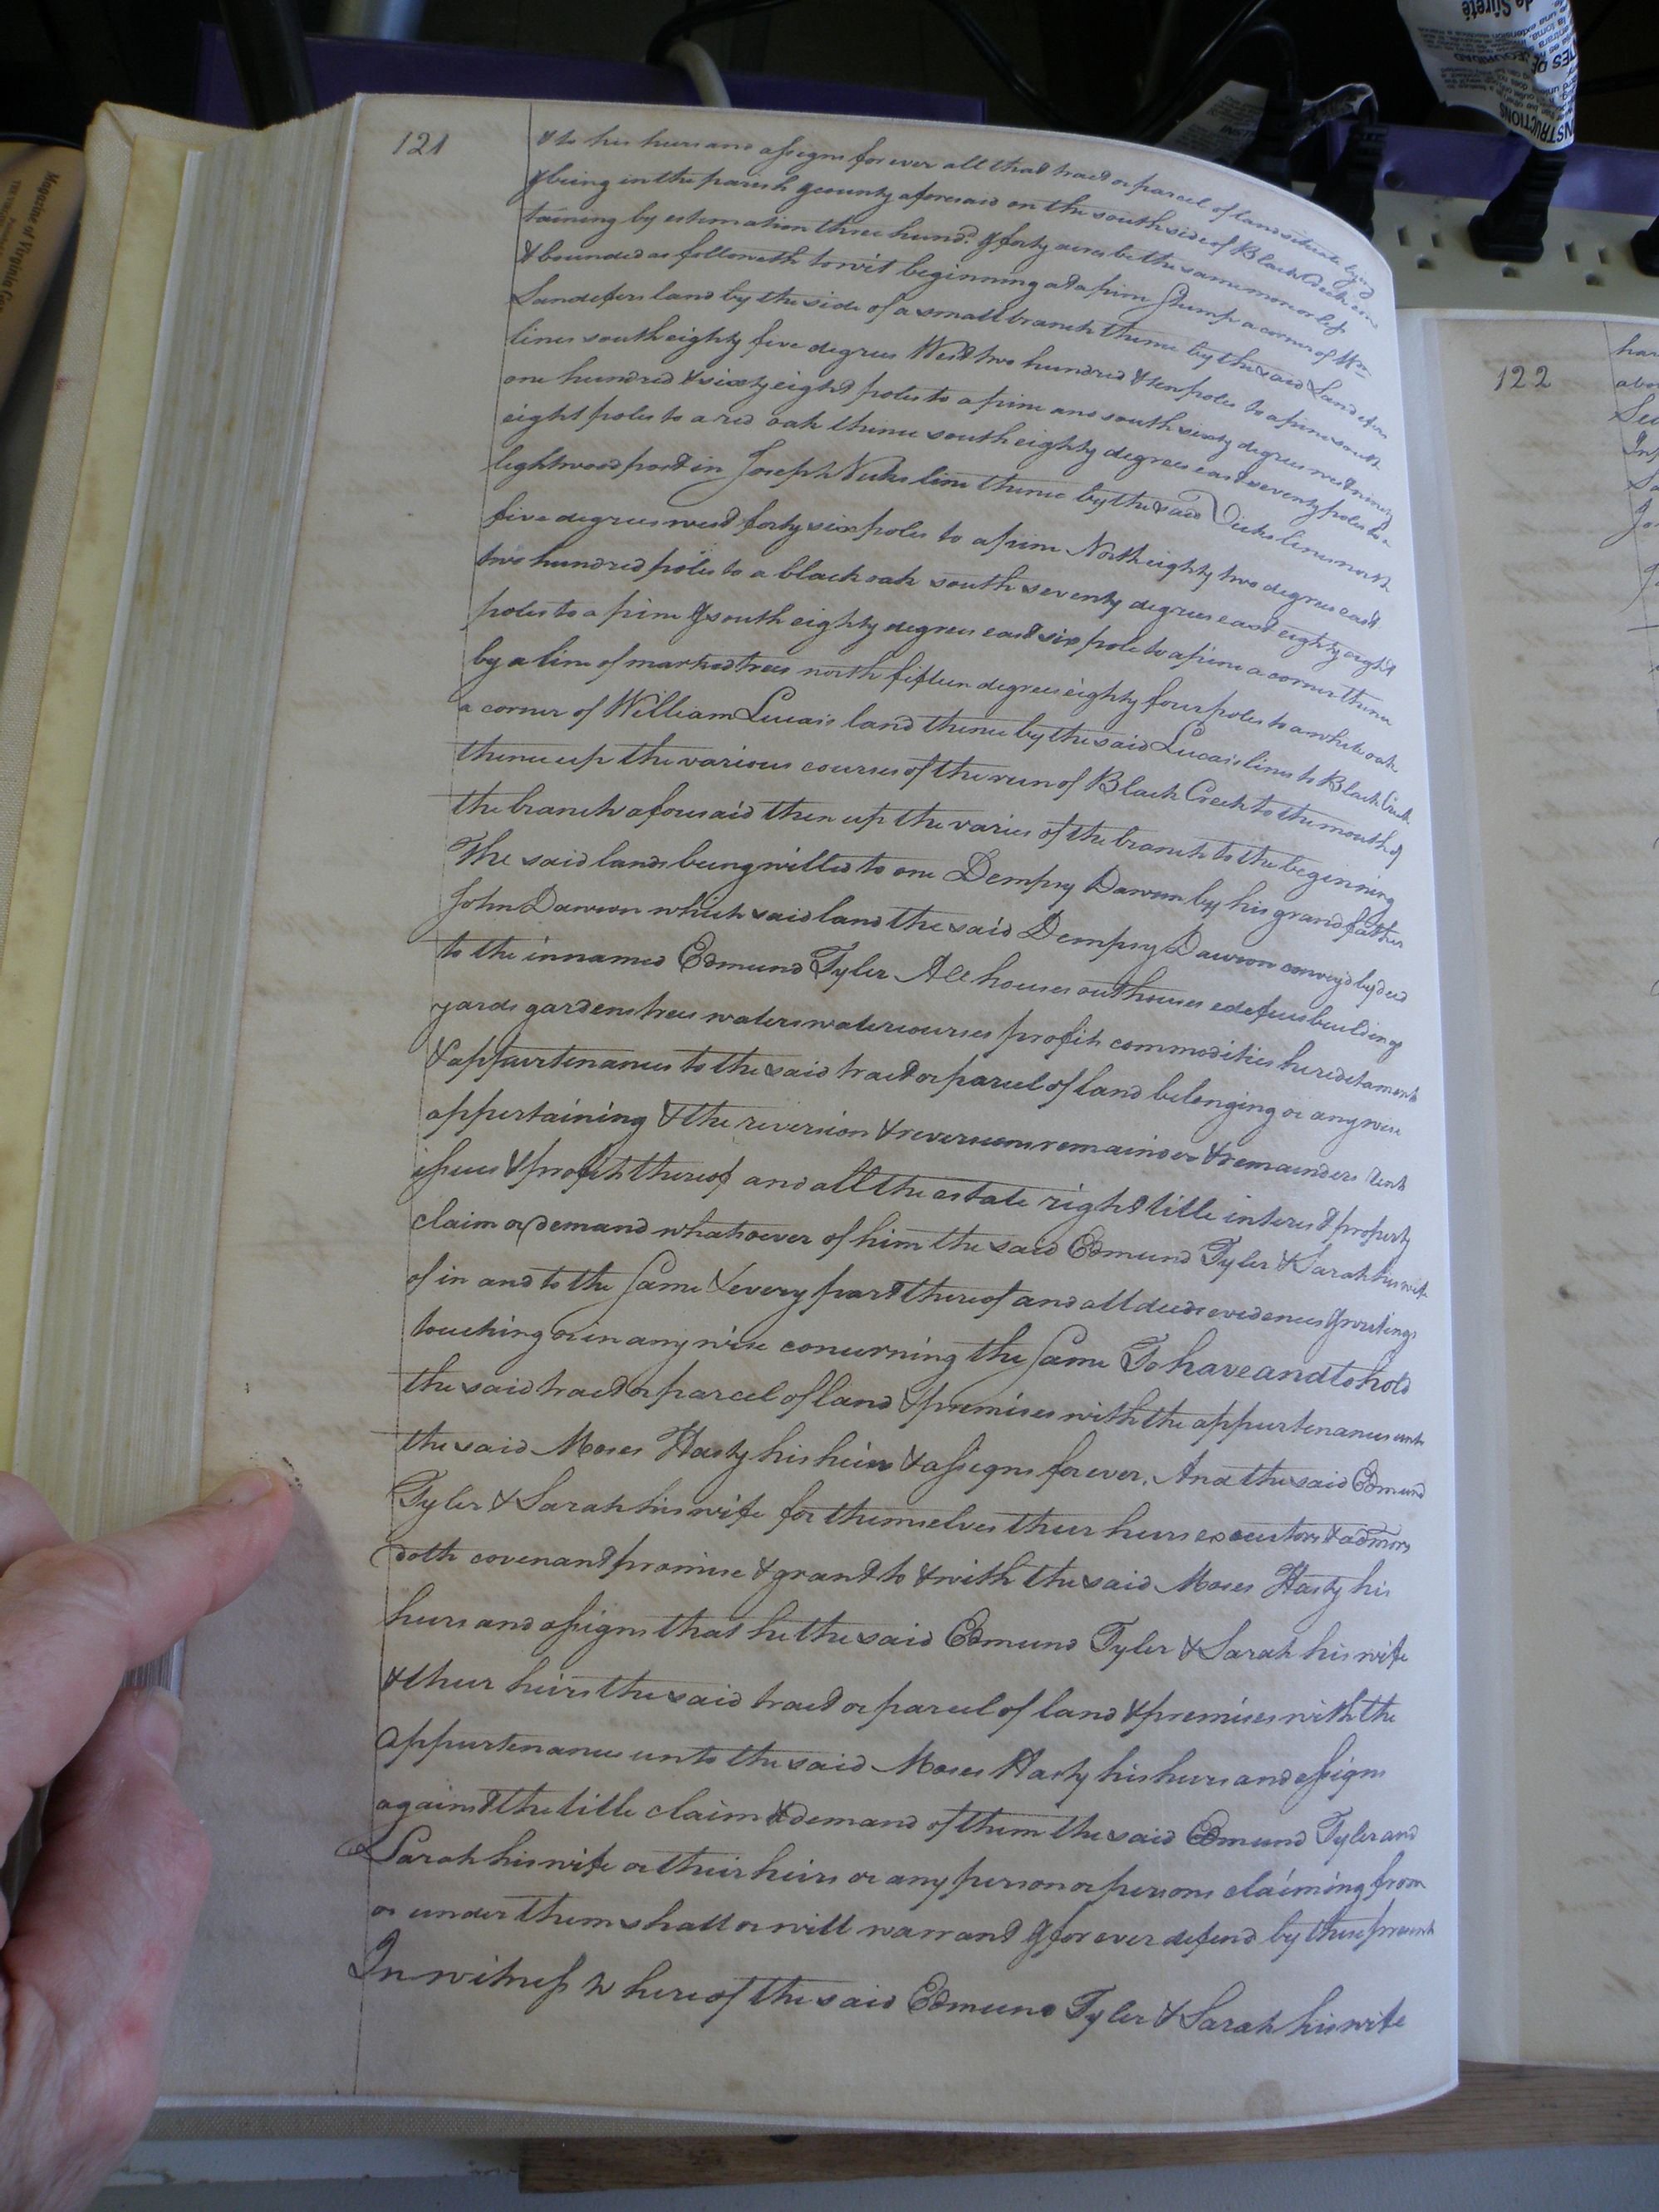 121
& to his heirs and assigns for ever all that tract or parcel of land situate lying
& being in the parish & county aforesaid on the south side of Black Creek con
taining by estimation three hund.d & forty acres be the same more or less
& bounded as followeth to wit beginning at a pine stump a corner of Wm
Sandefurs land by the side of a small branch thence by the said Sandefurs
lines south eighty five degrees West two hundred & ten poles to a pine south
one hundred & sixty eight poles to a pine and south sixty degrees west ninety
eight poles to a red oak thence south eighty degrees east seventy poles to a
lightwood post in Joseph Vicks line thence by the said Vicks lines north
five degrees west forty six poles to a pine North eighty two degrees east
two hundred poles to a black oak south seventy degrees east eighty eight
poles to a pine & south eighty degrees east six pole to a pine a corner thence
by a line of marked trees north fifteen degrees eighty four poles to a white oak
a corner of William Lucais land thence by the said Lucais lines to Black Creek
thence up the various courses of the run of Black Creek to the mouth of
the branch aforesaid then up the varies of the branch to the beginning
The said lands being willed to one Dempsy Dawson by his grandfather
John Dawson which said land the said Dempsy Dawson convey'd by deed
to the innamed Edmund Tyler All houses outhouses edefices buildings
yards gardens trees waters watercourses profits commodities hereditaments
& appurtenances to the said tract or parcel of land belonging or any wise
appertaining & the reversion & reversions remainder & remainders rents
issues & profits thereof and all the estate right title interest property
claim or demand whatsoever of him the said Edmund Tyler & Sarah his wife
of in and to the same & every part thereof and all deeds evidences & writings
touching or in any wise concerning the same To have and to hold
the said tract or parcel of land & premises with the appurtenances unto
the said Moses Hasty his heirs & assigns forever. And the said Edmund
Tyler & Sarah his wife for themselves their heirs executors & admors
doth covenant promise & grant to & with the said Moses Hasty his
heirs and assigns that he the said Edmund Tyler & Sarah his wife
& their heirs the said tract or parcel of land & premises with the
appurtenances unto the said Moses Hasty his heirs and assigns
against the title claim & demand of them the said Edmund Tyler and
Sarah his wife or their heirs or any person or persons claiming from
or under them shall or will warrant & for ever defend by these presents
In witness whereof the said Edmund Tyler & Sarah his wife
122
Magazine of Virginia
de Sûreté